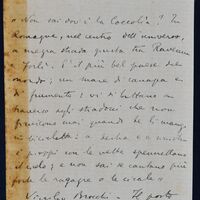 « Non sai dov'è la Coccolìa? In
Romagna, nel centro dell'universo,
a mezza strada questa tra Ravenna
e Forlì. È il più bel paese del
mondo; un mare di canapa e
di frumento: vi si buttano in
traverso agli stradoni che non
finiscono mai quando
in bicicletta; a destra e a
i pioppi con le vette spennellano
il cielo; e non sai se cantano più
forte le ragazze o le cicale »
Virgilio Brocchi - Il posto